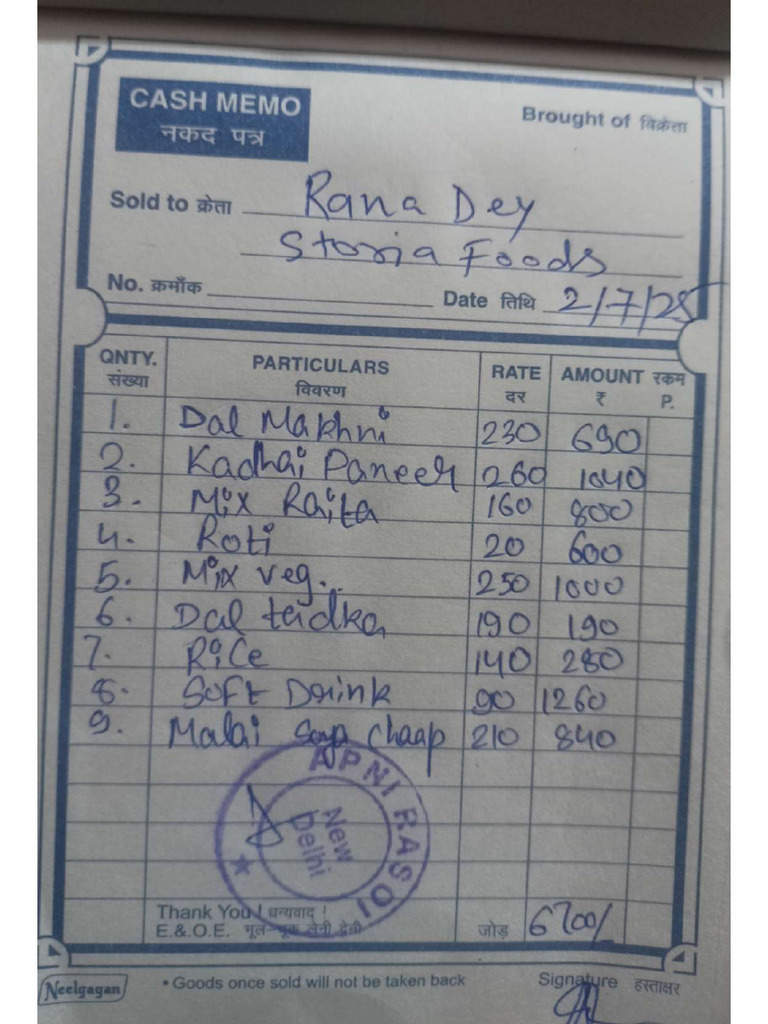 CASH MEMO
नकद पत्र
Brought of विक्रेता
Sold to क्रेता Rana Dey
Storia Foods
No. क्रमाँक Date तिथि 2/7/25
QNTY. संख्या PARTICULARS विवरण RATE दर AMOUNT रकम ₹ P.
1. Dal Makhni 230 690
2. Kadhai Paneer 260 1040
3. Mix Raita 160 800
4. Roti 20 600
5. Mix veg.. 250 1000
6. Dal tadka 190 190
7. Rice 140 280
8. Soft Drink 90 1260
9. Malai Soya chaap 210 840
APNI RASOI
New Delhi
Thank You ! धन्यवाद !
E.&.O.E. भूल-चूक लेनी देनी जोड़ 6700/
Neelgagan
• Goods once sold will not be taken back
Signature हस्ताक्षर